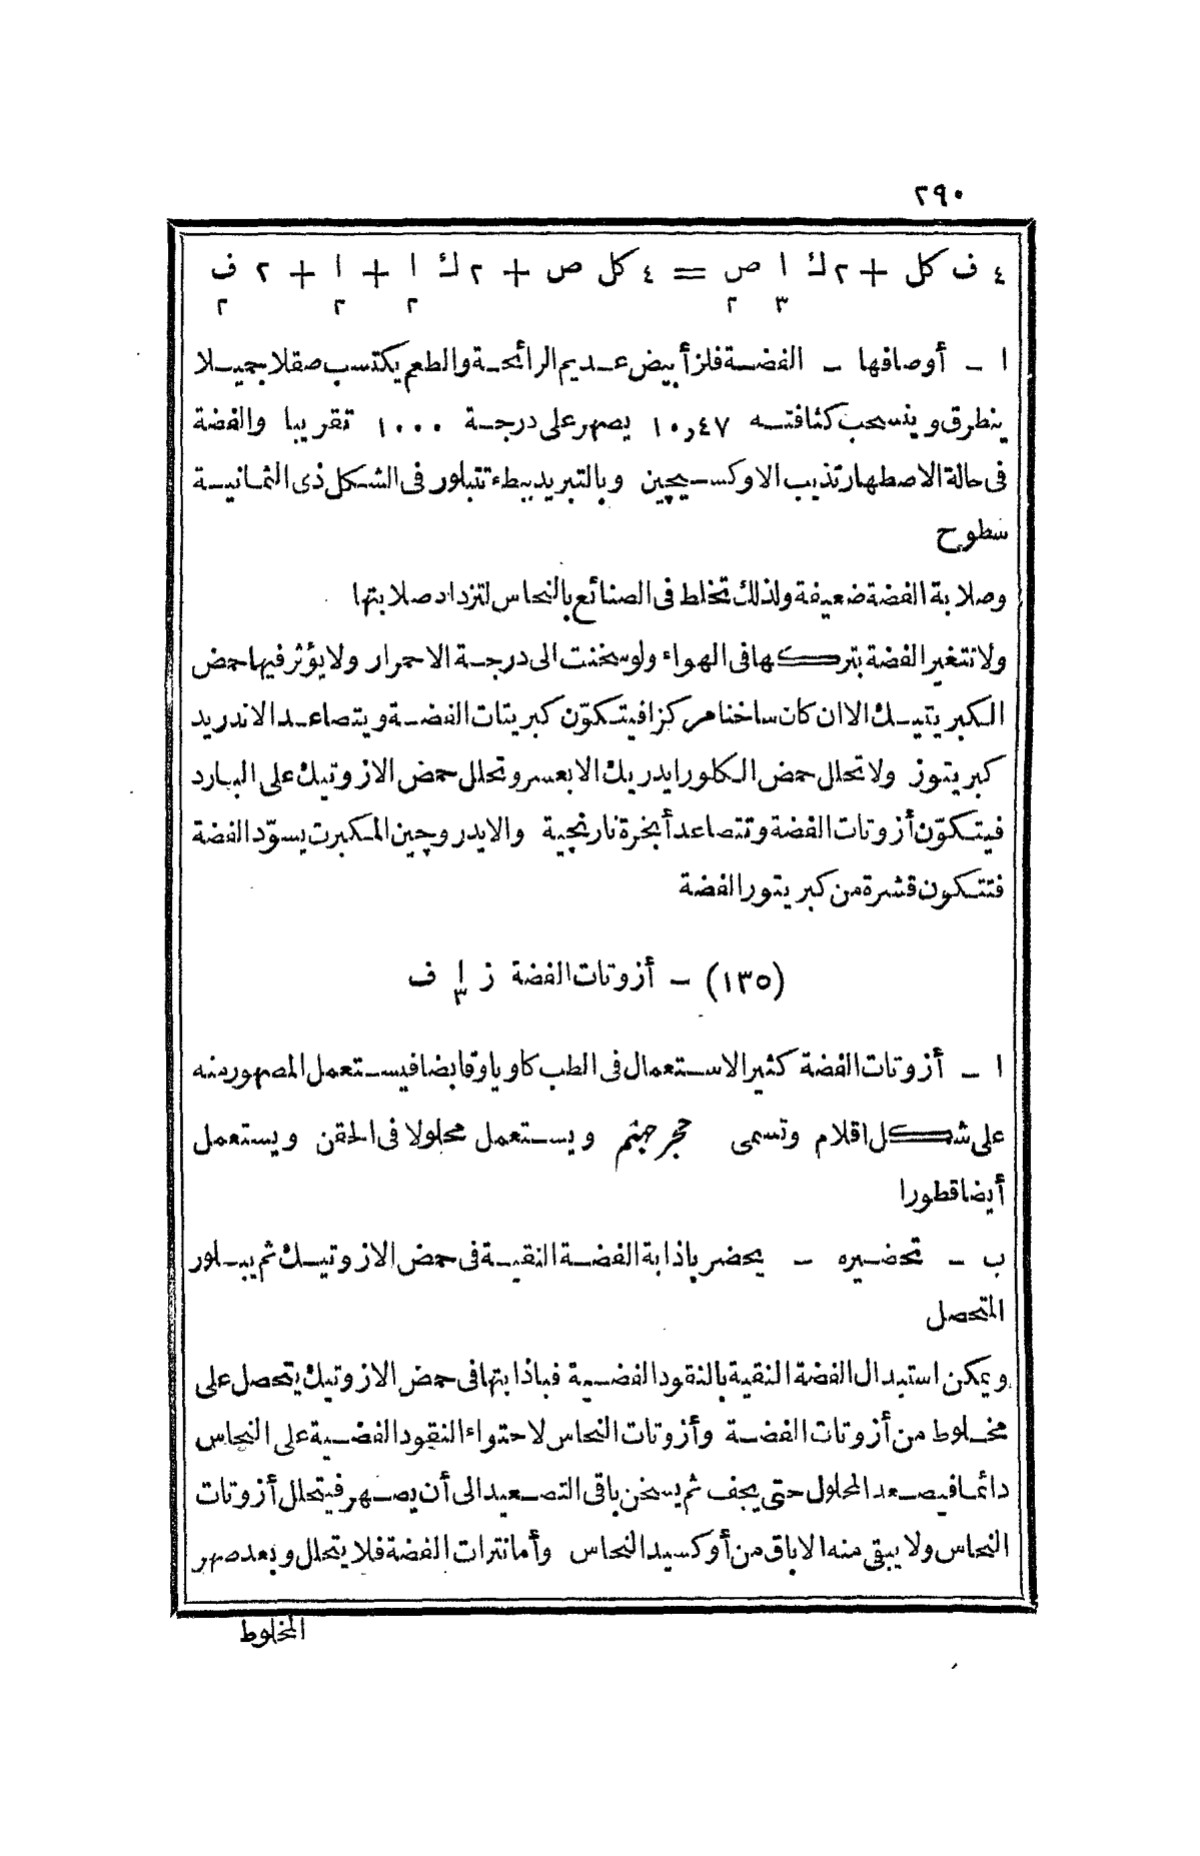 ٢٩٠
٤ ف كل + ٢ ك ا٣ ص٢ = ٤ كل ص + ٢ ك ا٢ + ا٢ + ٢ ف٢
ا ـ أوصافها ـ الفضة فلز أبيض عديم الرائحة والطعم يكتسب صقلا جميلا
ينطرق وينسحب كثافته ١٠,٤٧ يصهر على درجة ١٠٠٠ تقريبا والفضة
فى حالة الاصطهار تذيب الاوكسيچين وبالتبريد ببطء تتبلور فى الشكل ذى الثمانية
سطوح
وصلابة الفضة ضعيفة ولذلك تخلط فى الصنائع بالنحاس لتزداد صلابتها
ولا تتغير الفضة بتركها فى الهواء ولو سخنت الى درجة الاحمرار ولا يؤثر فيها حمض
الكبريتيك الا ان كان ساخنا مركزا فيتكوّن كبريتات الفضة ويتصاعد الاندريد
كبريتوز ولا تحلل حمض الكلورايدريك الا بعسر وتحلل حمض الازوتيك على البارد
فيتكوّن أزوتات الفضة وتتصاعد أبخرة نارنجية والايدروچين المكبرت يسوّد الفضة
فتتكون قشرة من كبريتور الفضة
(١٣٥) ـ أزوتات الفضة ز ا٣ ف
ا ـ أزوتات الفضة كثير الاستعمال فى الطب كاويا وقابضا فيستعمل المصهور منه
على شكل اقلام وتسمى حجر جهنم ويستعمل محلولا فى الحقن ويستعمل
أيضا قطورا
ب ـ تحضيره ـ يحضر باذابة الفضة النقية فى حمض الازوتيك ثم يبلور
المتحصل
ويمكن استبدال الفضة النقية بالنقود الفضية فباذابتها فى حمض الازوتيك يتحصل على
مخلوط من أزوتات الفضة وأزوتات النحاس لاحتواء النقود الفضية على النحاس
دائما فيصعد المحلول حتى يجف ثم يسخن باقى التصعيد الى أن يصهر فيتحلل أزوتات
النحاس ولا يبقى منه الا باق من أوكسيد النحاس وأما نترات الفضة فلا يتحلل وبعد صهر
المخلوط